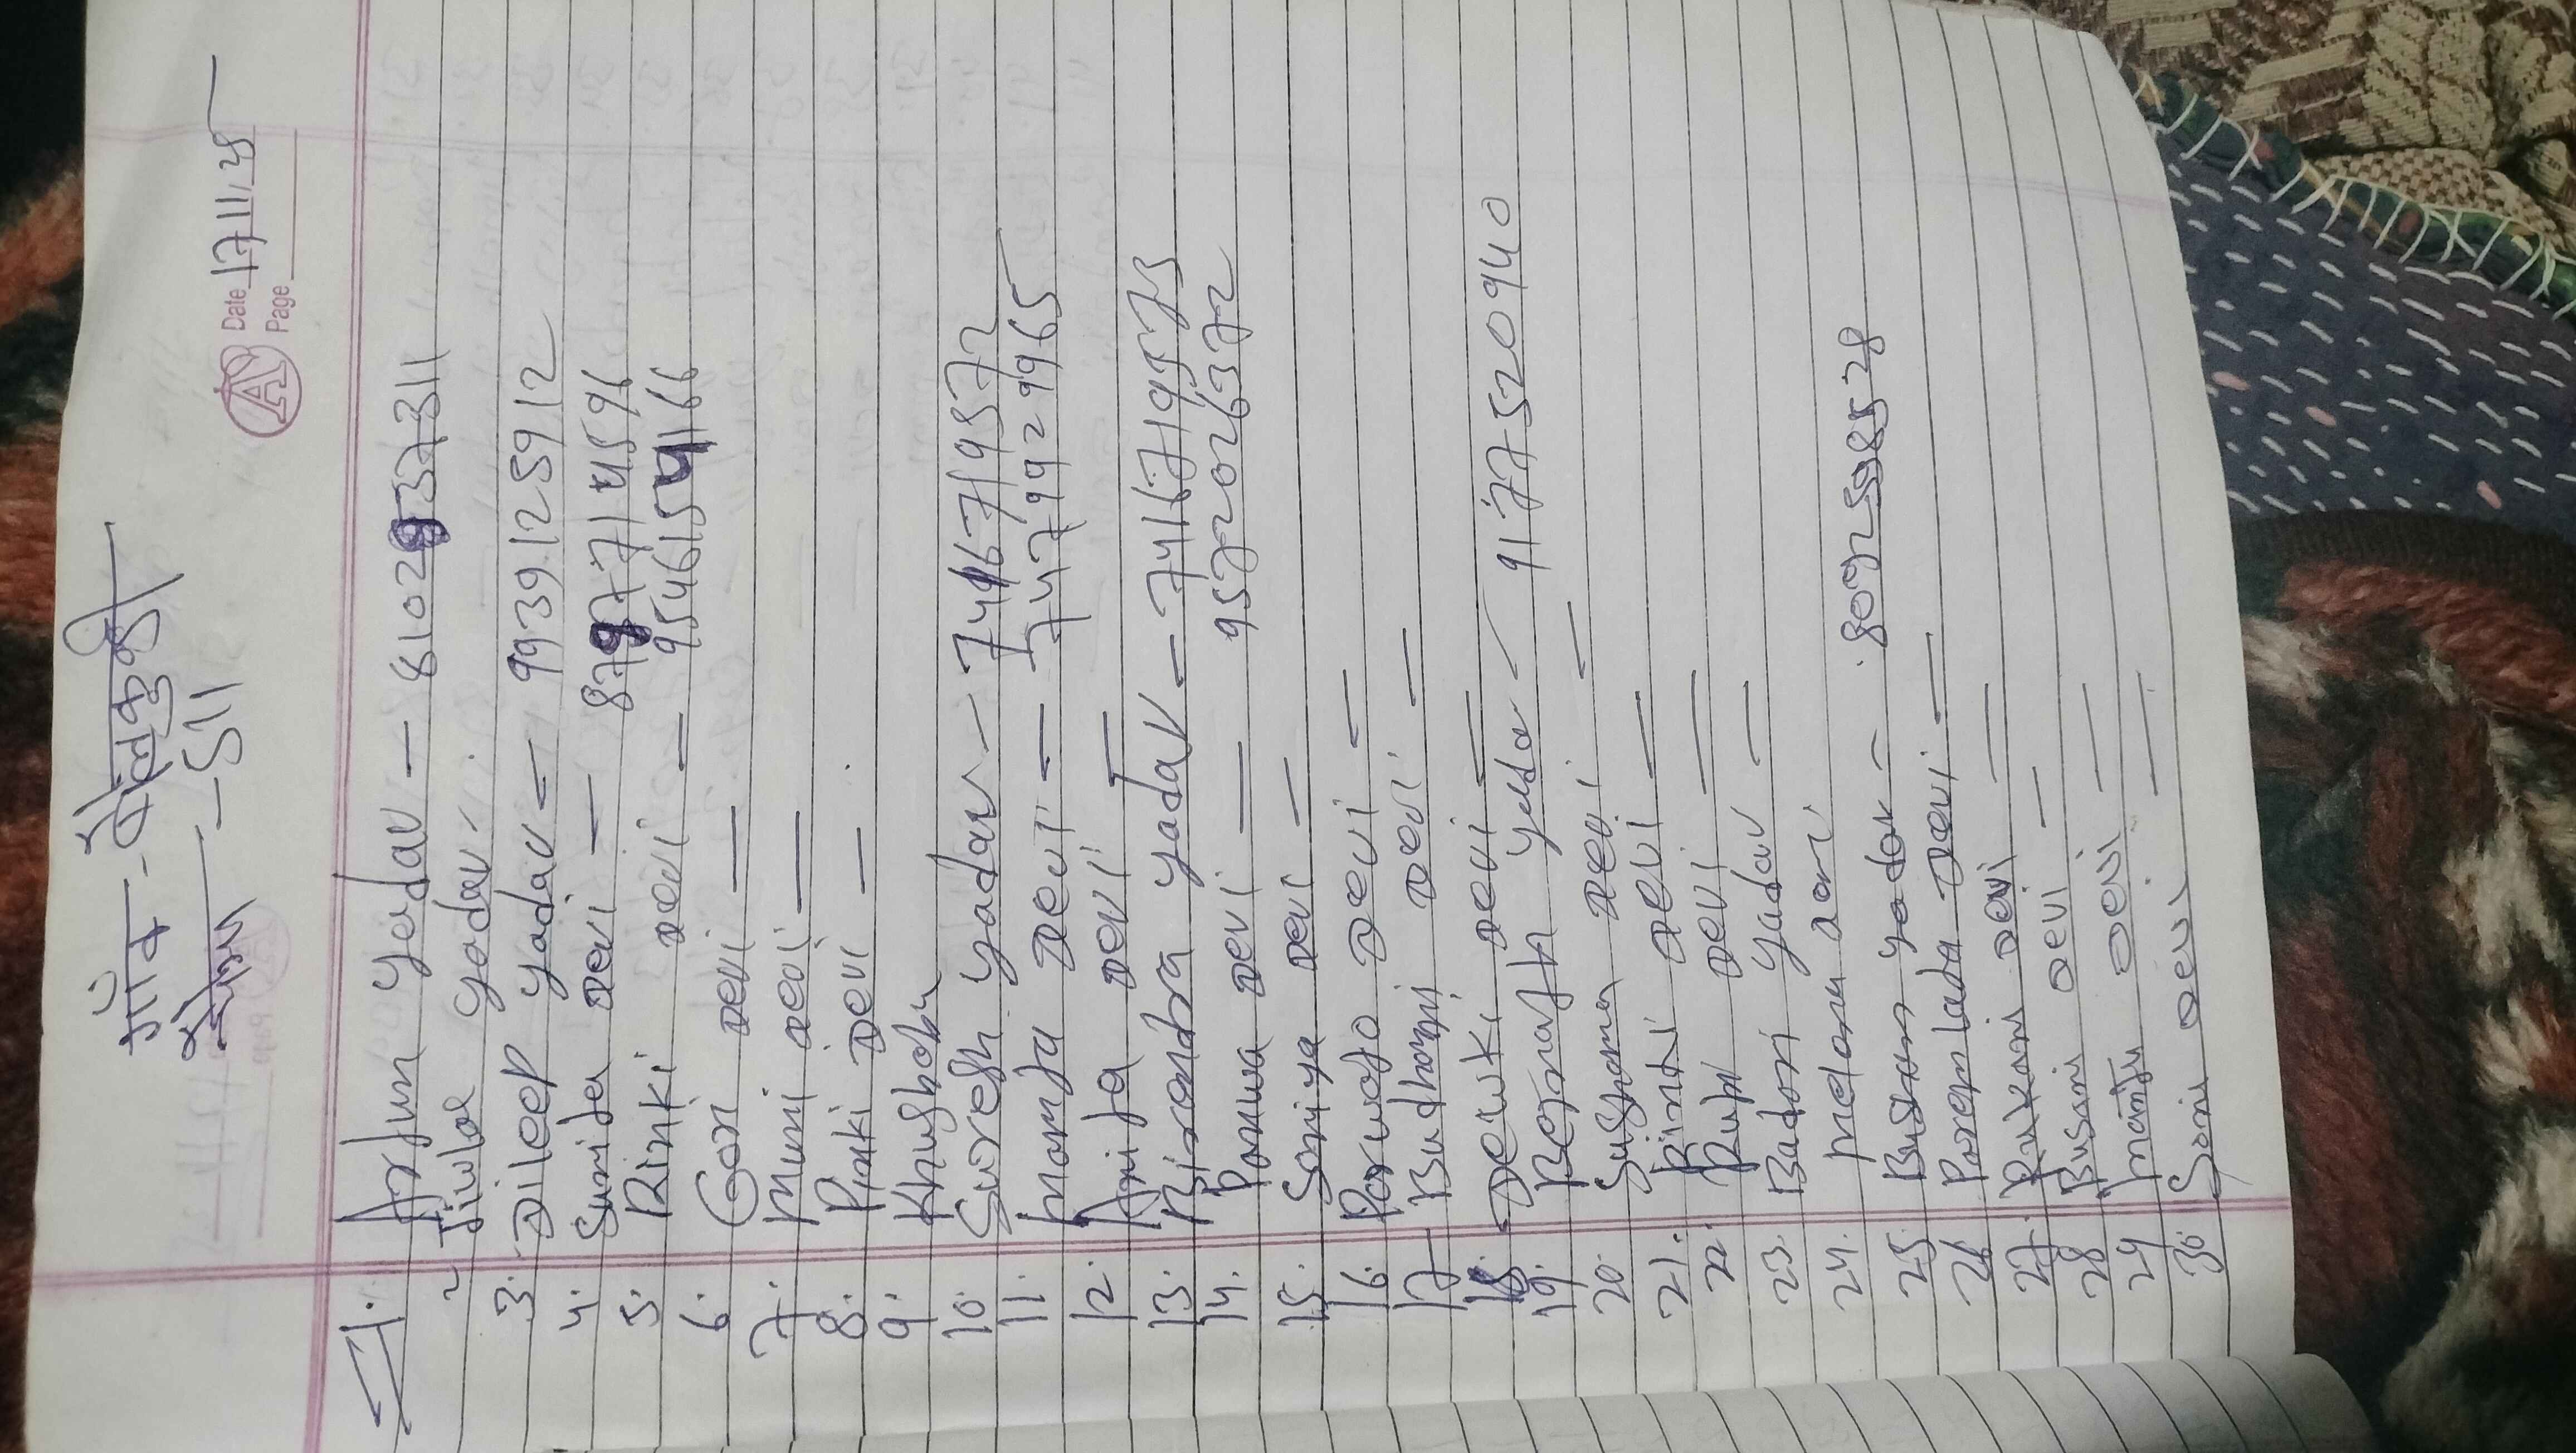 गाँव - चेंदकुशी
Date 17/11/25
Page
-511
1. Arjun Yadav - 8102937311
2 Jiwlal Yadav
3. Dileep Yadav - 9939125912
4. Sunita Devi - 8797714596
5. Rinki Devi - 9546154166
6. Devi -
7. Munni Devi -
8. Pinki Devi -
9. Khushabu
10. Suresh Yadav - 7416719572
11. Mamta Devi - 7479929965
12. Anita Devi -
13. Birendra Yadav - 7416719573
14. Devi - 9572026372
15. Soniya Devi -
16. Devi -
17 Budhani Devi -
18. Dewki Devi =
19. Bejnath Yadav - 9177520940
20. Sushama Devi -
21. Rinki Devi -
22. Rupa Devi =
23. Badri Yadav -
24. Devi
25. Yadav - 8092598528
26 Prem lada Devi =
27. Rukani Devi =
28 Busani Devi -
29 Manju Devi -
30. Soni Devi -